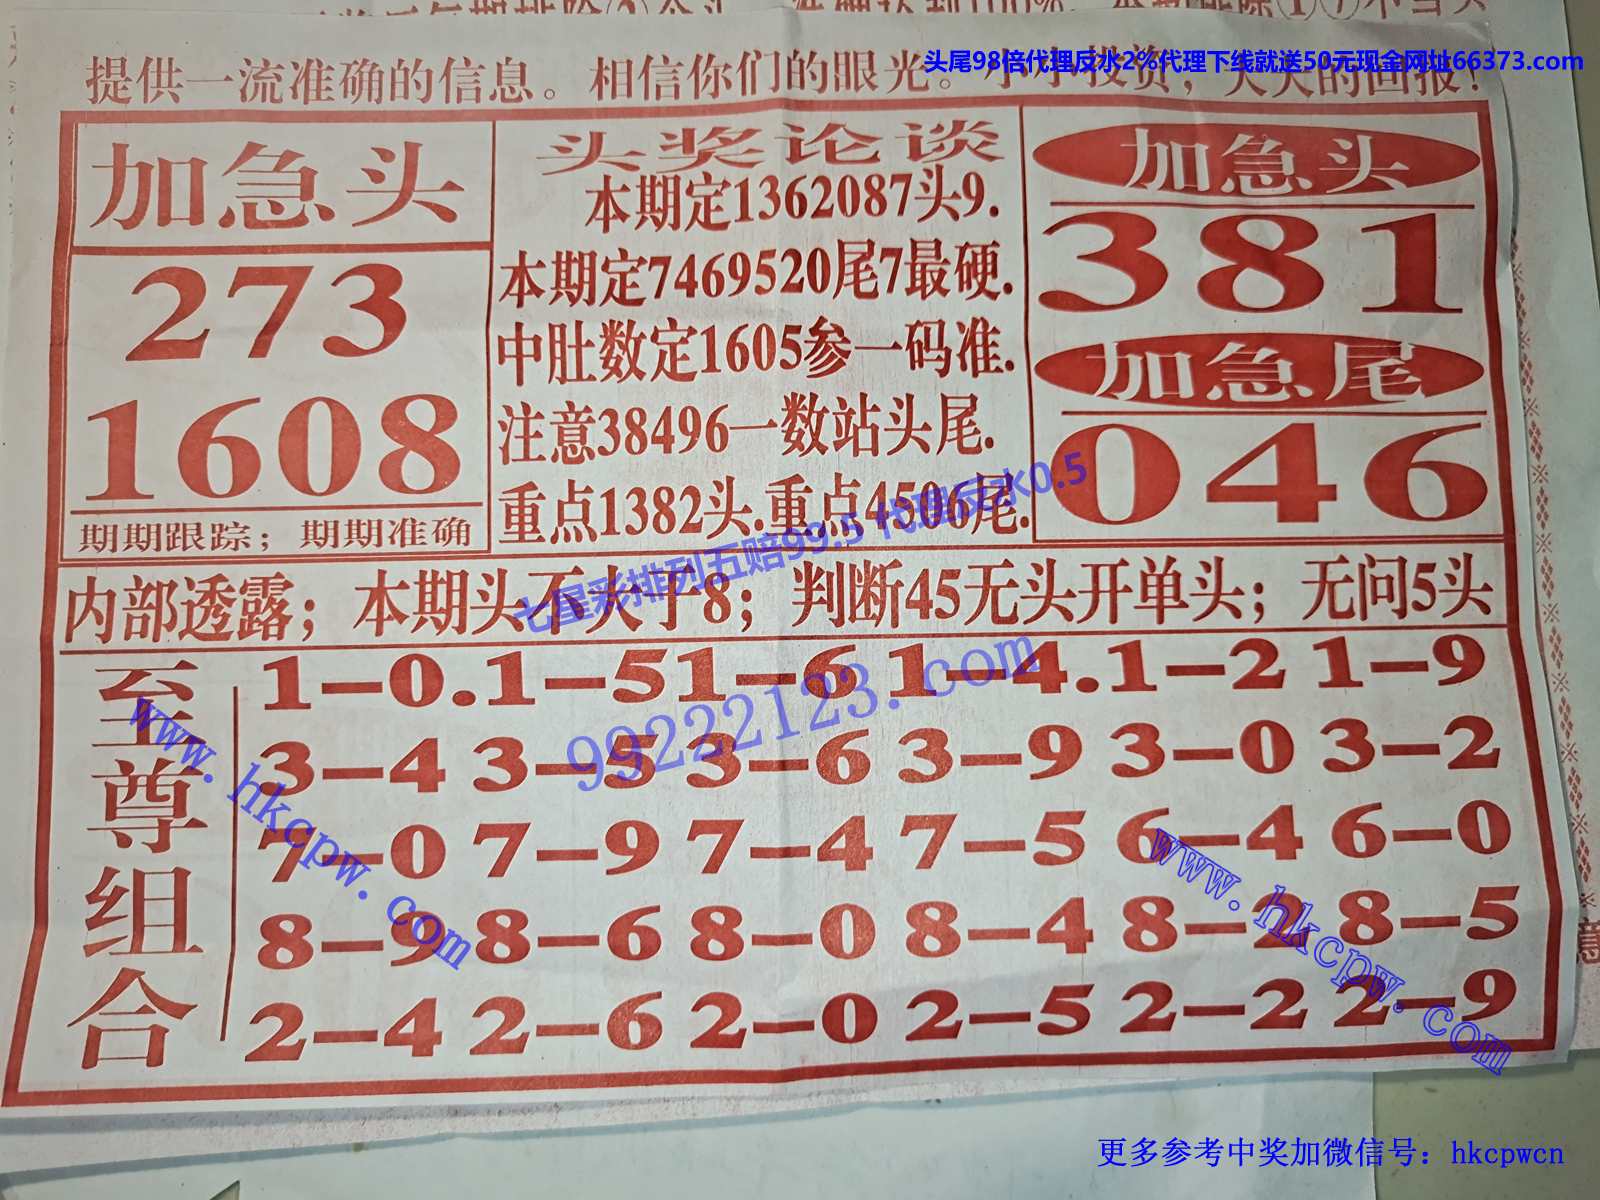 头尾98倍代理反水2%代理下线就送50元现金网址66373.com
提供一流准确的信息。相信你们的眼光。小小投资，天天的回报！
加急头
273
1608
期期跟踪；期期准确
头奖论谈
本期定1362087头9.
本期定7469520尾7最硬.
中肚数定1605参一码准.
注意38496一数站头尾.
重点1382头.重点4506尾.
加急头
381
加急尾
046
七星彩排列五赔99.5 代理反水0.5
内部透露；本期头不大于8；判断45无头开单头；无问5头
99222123.com
至尊组合
1—0.1—5 1—6 1—4.1—2 1—9
3—4 3—5 3—6 3—9 3—0 3—2
7—0 7—9 7—4 7—5 6—4 6—0
8—9 8—6 8—0 8—4 8—2 8—5
2—4 2—6 2—0 2—5 2—2 2—9
www.hkcpw.com
www.hkcpw.com
更多参考中奖加微信号：hkcpwcn